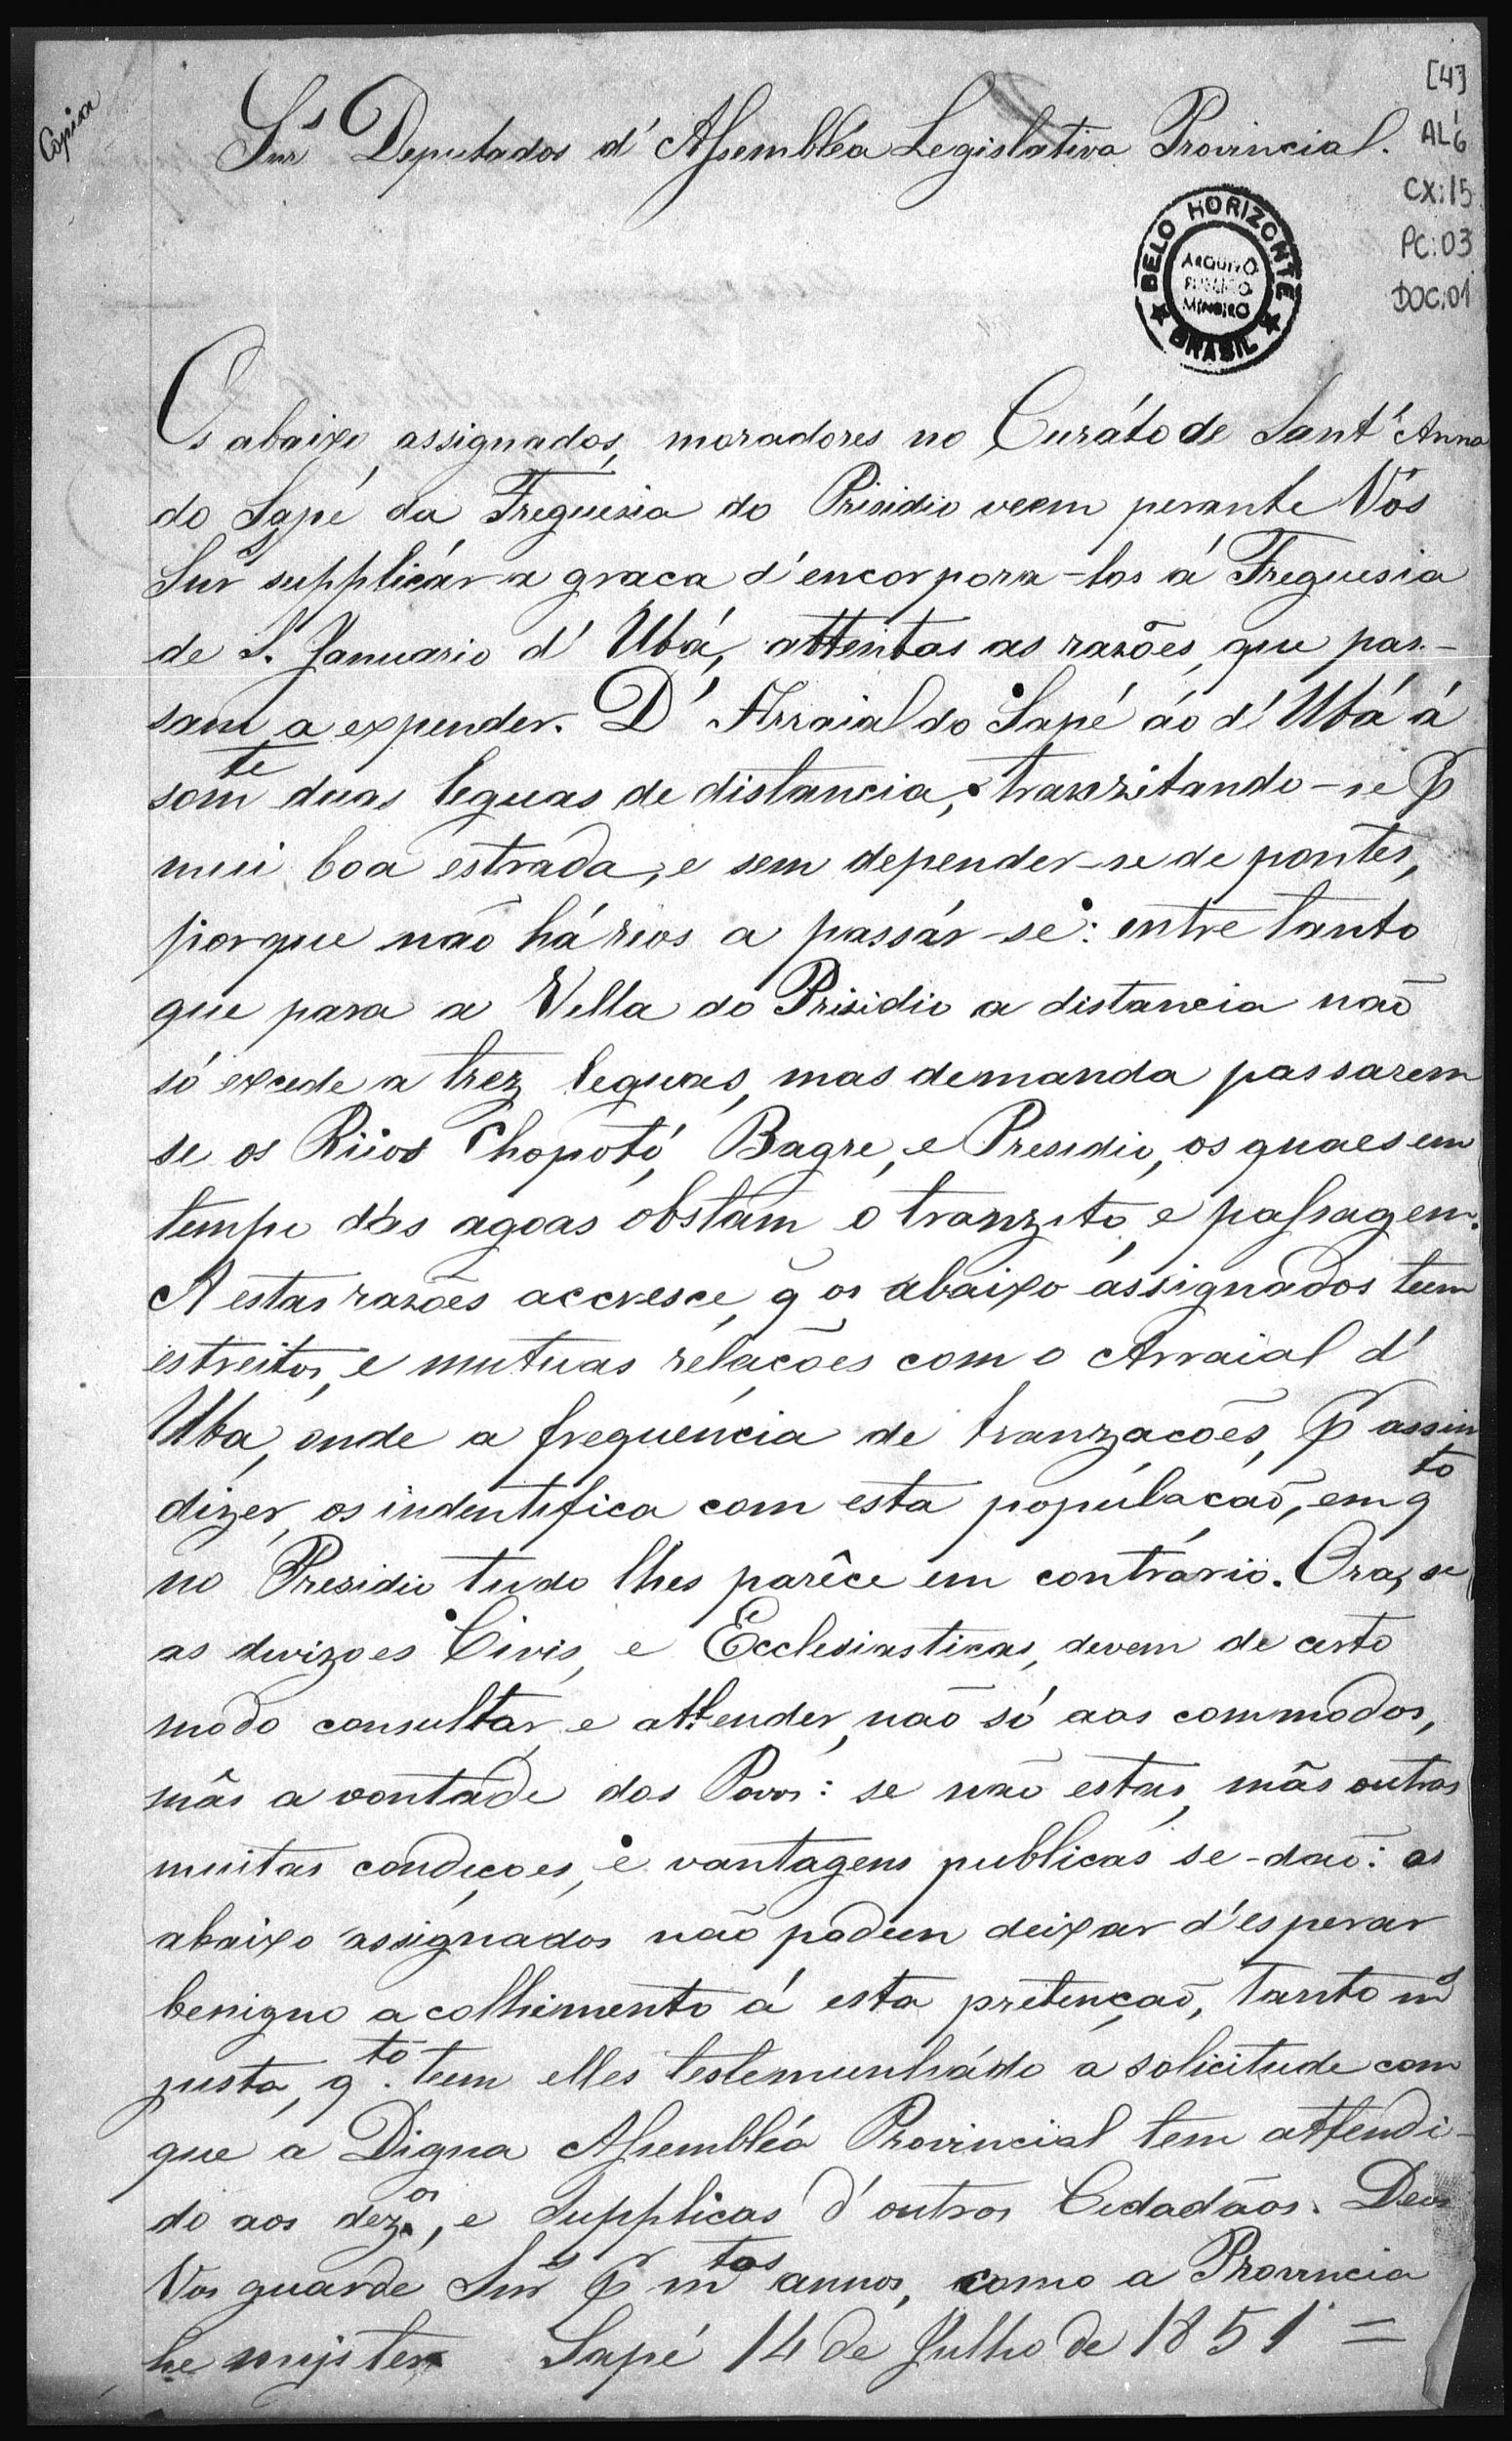 Copia
[4]
Snr.s Deputados d' Assembléa Legislativa Provincial.
AL 6
CX:15
PC:03
DOC:01
BELO HORIZONTE
ARQUIVO
PUBLICO
MINEIRO
BRASIL
Os abaixo assignados, moradores no Curáto de Sant'Anna
do Sapé da Freguesia do Prisidio veem perante Vós
Snr.s supplicár a graca d'encorpora-los á Freguesia
de S. Januario d' Ubá, attentas as razões, que pas-
sam a expender. D' Arraial do Sapé áo d' Ubá á
som.te duas leguas de distancia, tranzitando-se p.
mui boa estrada, e sem depender-se de pontes,
porque não há rios a passár-se: entre tanto
que para a Villa do Prisidio a distancia naõ
só excede a trez leguas, mas demanda passarem
se os Rios Chopotó, Bagre, e Presidio, os quaes em
tempo dás agoas obstam o tranzito, e passagem.
A estas razões accresce, q̃ os abaixo assignados tem
estreitos, e mutuas relacões com o Arraial d'
Uba, onde a frequencia de tranzacões, p. assim
dizer, os indentifica com esta populacaõ, em q.to
no Presidio tudo lhes parêce em contrário. Ora, se
as divizoes Civis, e Ecclesiasticas, devem de certo
modo consultar, e attender, não só aos commodos,
mâs a vontade dos Povos: se naõ estas, mâs outras
muitas condiçoes, e vantagens publicas se-daõ: os
abaixo assignados não podem deixar d'esperar
benigno acolhimento á esta pretençaõ, tanto m.s
justa, q.to tem elles testemunhádo a solicitude com
que a Digna Assembléa Provincial tem attendi-
do aos dez.os, e supplicas d'outros Cidadãos. Deos
Vos guarde Snr.s p. m.tos annos, como a Provincia
he mister Sapé 14 de Julho de 1851 =